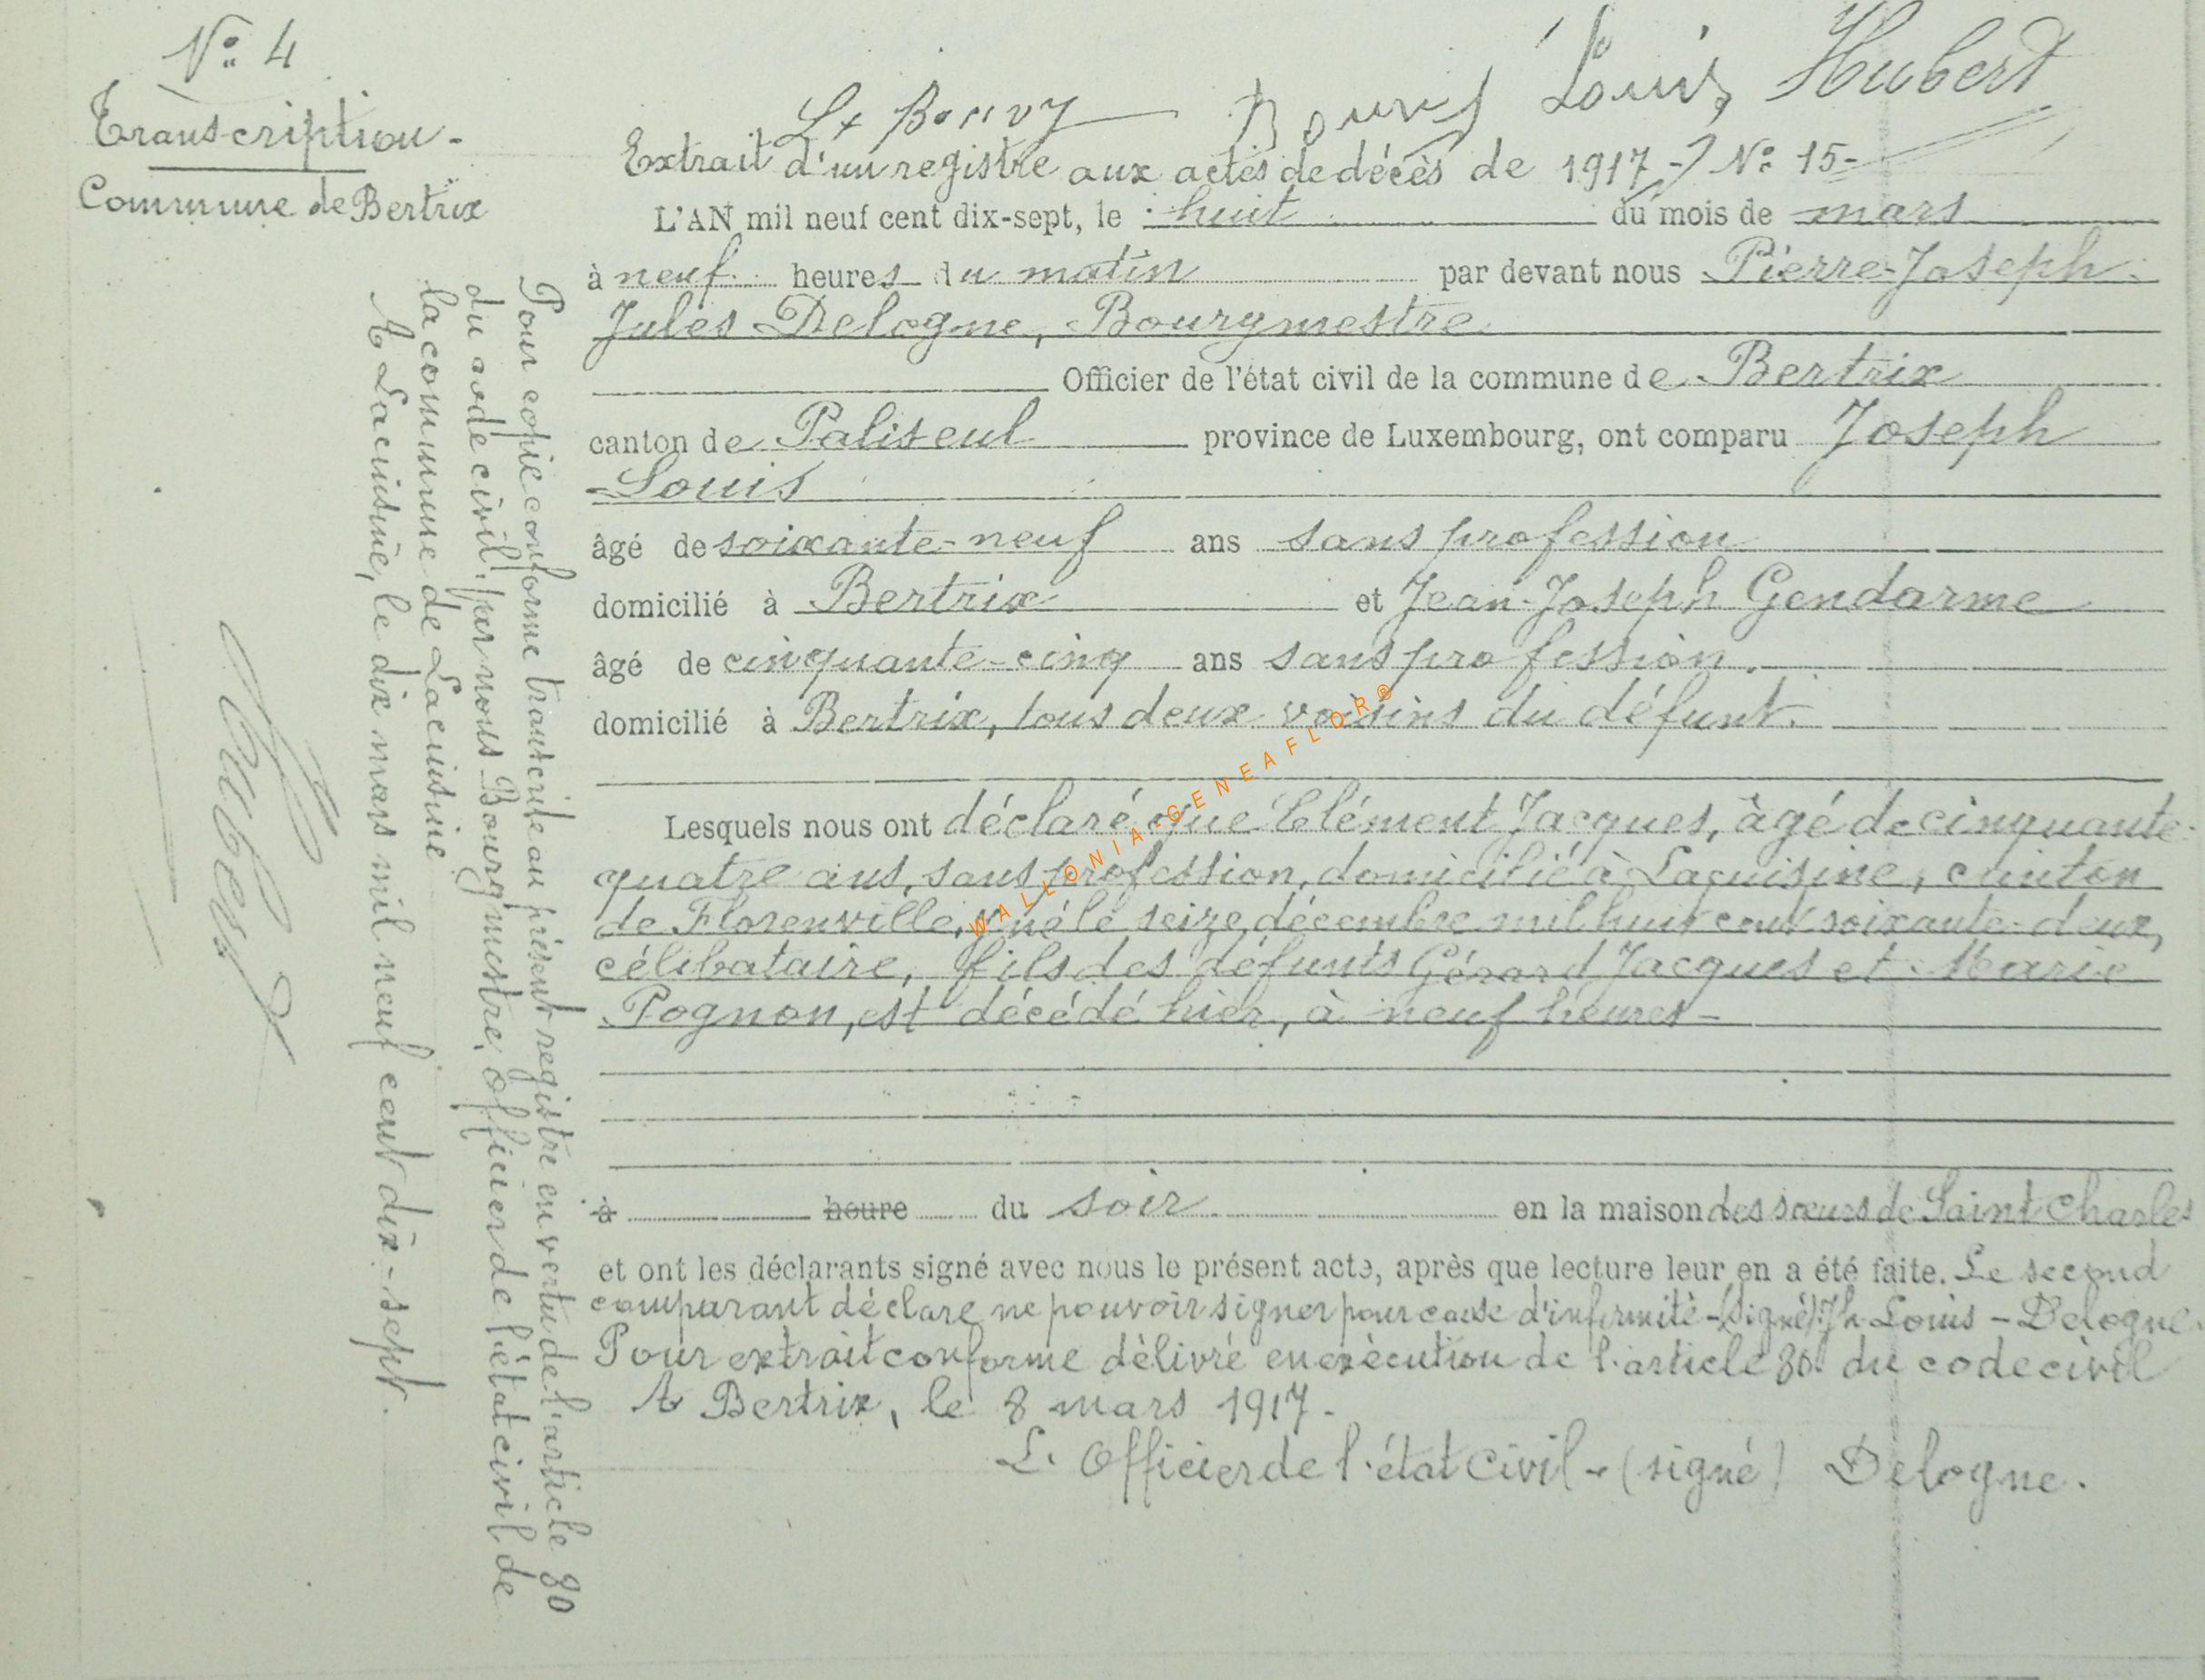 N° 4
Transcription -
Commune de Bertrix
Lx Bouvy Bouvy Louis Hubert
Extrait d'un registre aux actes de décès de 1917 - N° 15 -
L'AN mil neuf cent dix-sept, le huit du mois de mars
à neuf heures du matin par devant nous Pierre-Joseph-
Jules Delogne, Bourgmestre
Officier de l'état civil de la commune de Bertrix
canton de Paliseul province de Luxembourg, ont comparu Joseph
Louis
âgé de soixante-neuf ans sans profession
domicilié à Bertrix et Jean-Joseph Gendarme
âgé de cinquante-cinq ans sans profession.
domicilié à Bertrix, tous deux voisins du défunt.
Lesquels nous ont déclaré que Clément Jacques, âgé de cinquante-
quatre ans, sans profession, domicilié à Lacuisine, canton
de Florenville, y né le seize décembre mil huit cent soixante-deux,
célibataire, fils des défunts Gérard Jacques et Marie
Pognon, est décédé hier, à neuf heures -
à heure du soir en la maison des sœurs de Saint Charles
et ont les déclarants signé avec nous le présent acte, après que lecture leur en a été faite. Le second
comparant déclare ne pouvoir signer pour cause d'infirmité - (signé) Jh Louis - Delogne.
Pour extrait conforme délivré en exécution de l'article 80 du code civil
A Bertrix, le 8 mars 1917 -
L'Officier de l'état civil - (signé) Delogne.
Pour copie conforme transcrite au présent registre en vertu de l'article 80
du code civil, par nous Bourgmestre, Officier de l'état civil de
la commune de Lacuisine
A Lacuisine, le dix mars mil neuf cent dix-sept.
WALLONIA-GENEAFLOR®